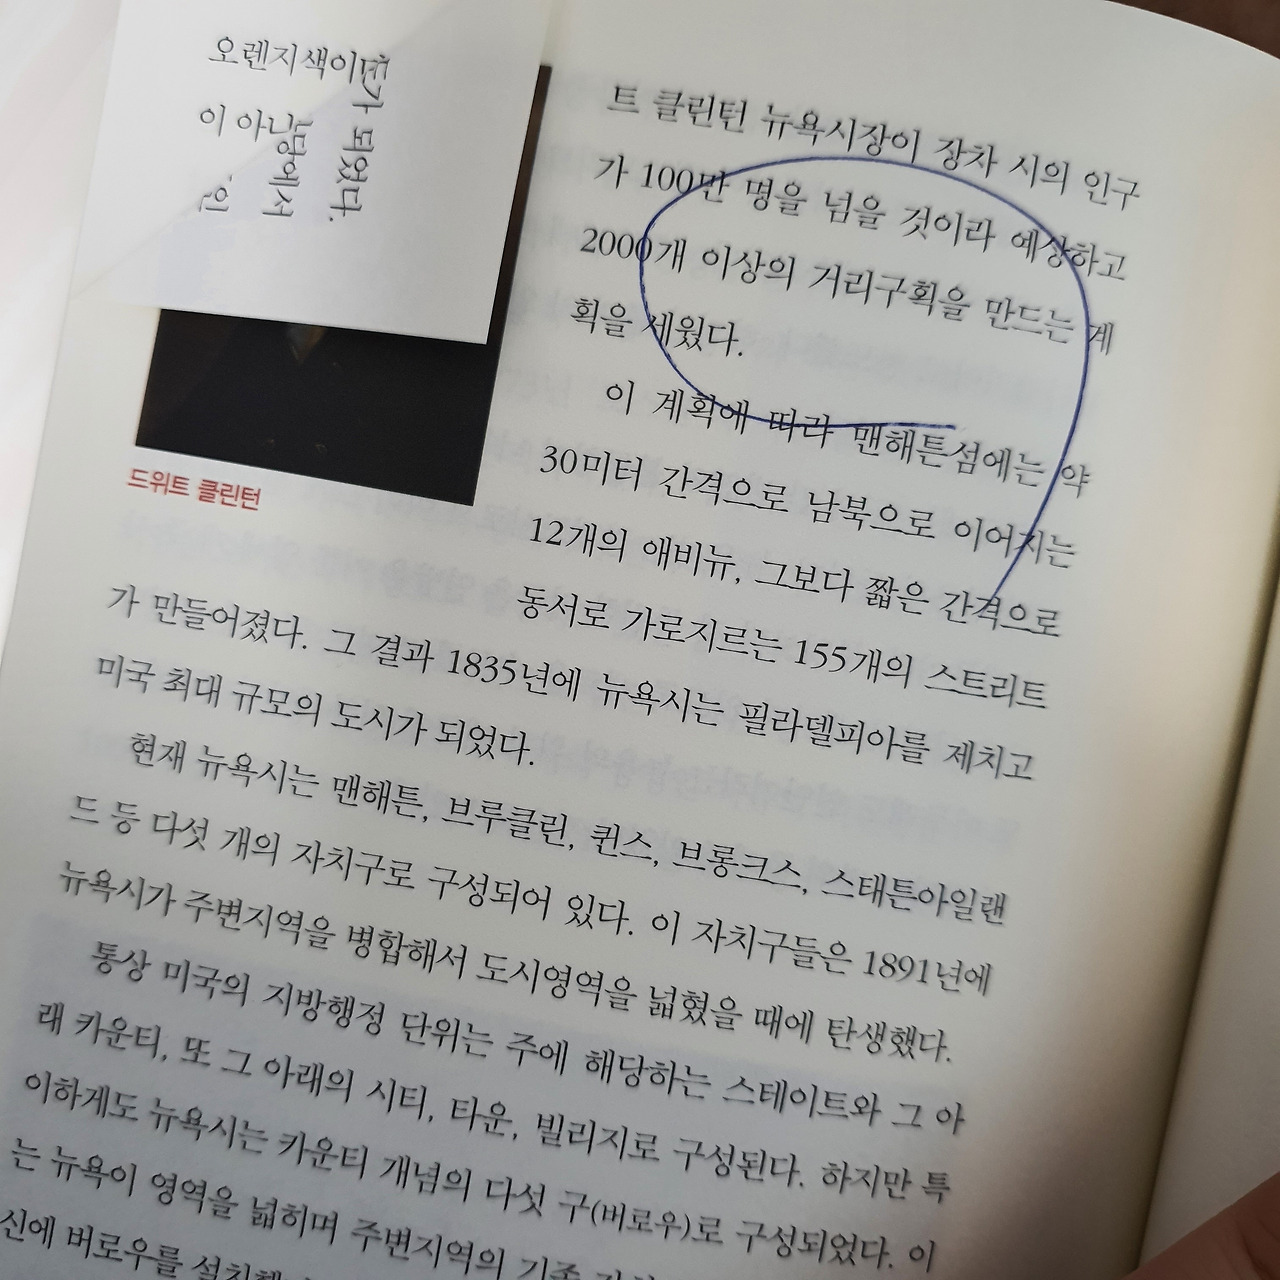 오렌지색이던
이 아니
가 되었다.
땅에서
인
드위트 클린턴
트 클린턴 뉴욕시장이 장차 시의 인구
가 100만 명을 넘을 것이라 예상하고
2000개 이상의 거리구획을 만드는 계
획을 세웠다.
이 계획에 따라 맨해튼섬에는 약
30미터 간격으로 남북으로 이어지는
12개의 애비뉴, 그보다 짧은 간격으로
동서로 가로지르는 155개의 스트리트
가 만들어졌다. 그 결과 1835년에 뉴욕시는 필라델피아를 제치고
미국 최대 규모의 도시가 되었다.
현재 뉴욕시는 맨해튼, 브루클린, 퀸스, 브롱크스, 스태튼아일랜
드 등 다섯 개의 자치구로 구성되어 있다. 이 자치구들은 1891년에
뉴욕시가 주변지역을 병합해서 도시영역을 넓혔을 때에 탄생했다.
통상 미국의 지방행정 단위는 주에 해당하는 스테이트와 그 아
래 카운티, 또 그 아래의 시티, 타운, 빌리지로 구성된다. 하지만 특
이하게도 뉴욕시는 카운티 개념의 다섯 구(버로우)로 구성되었다. 이
는 뉴욕이 영역을 넓히며 주변지역의 기존
신에 버로우를